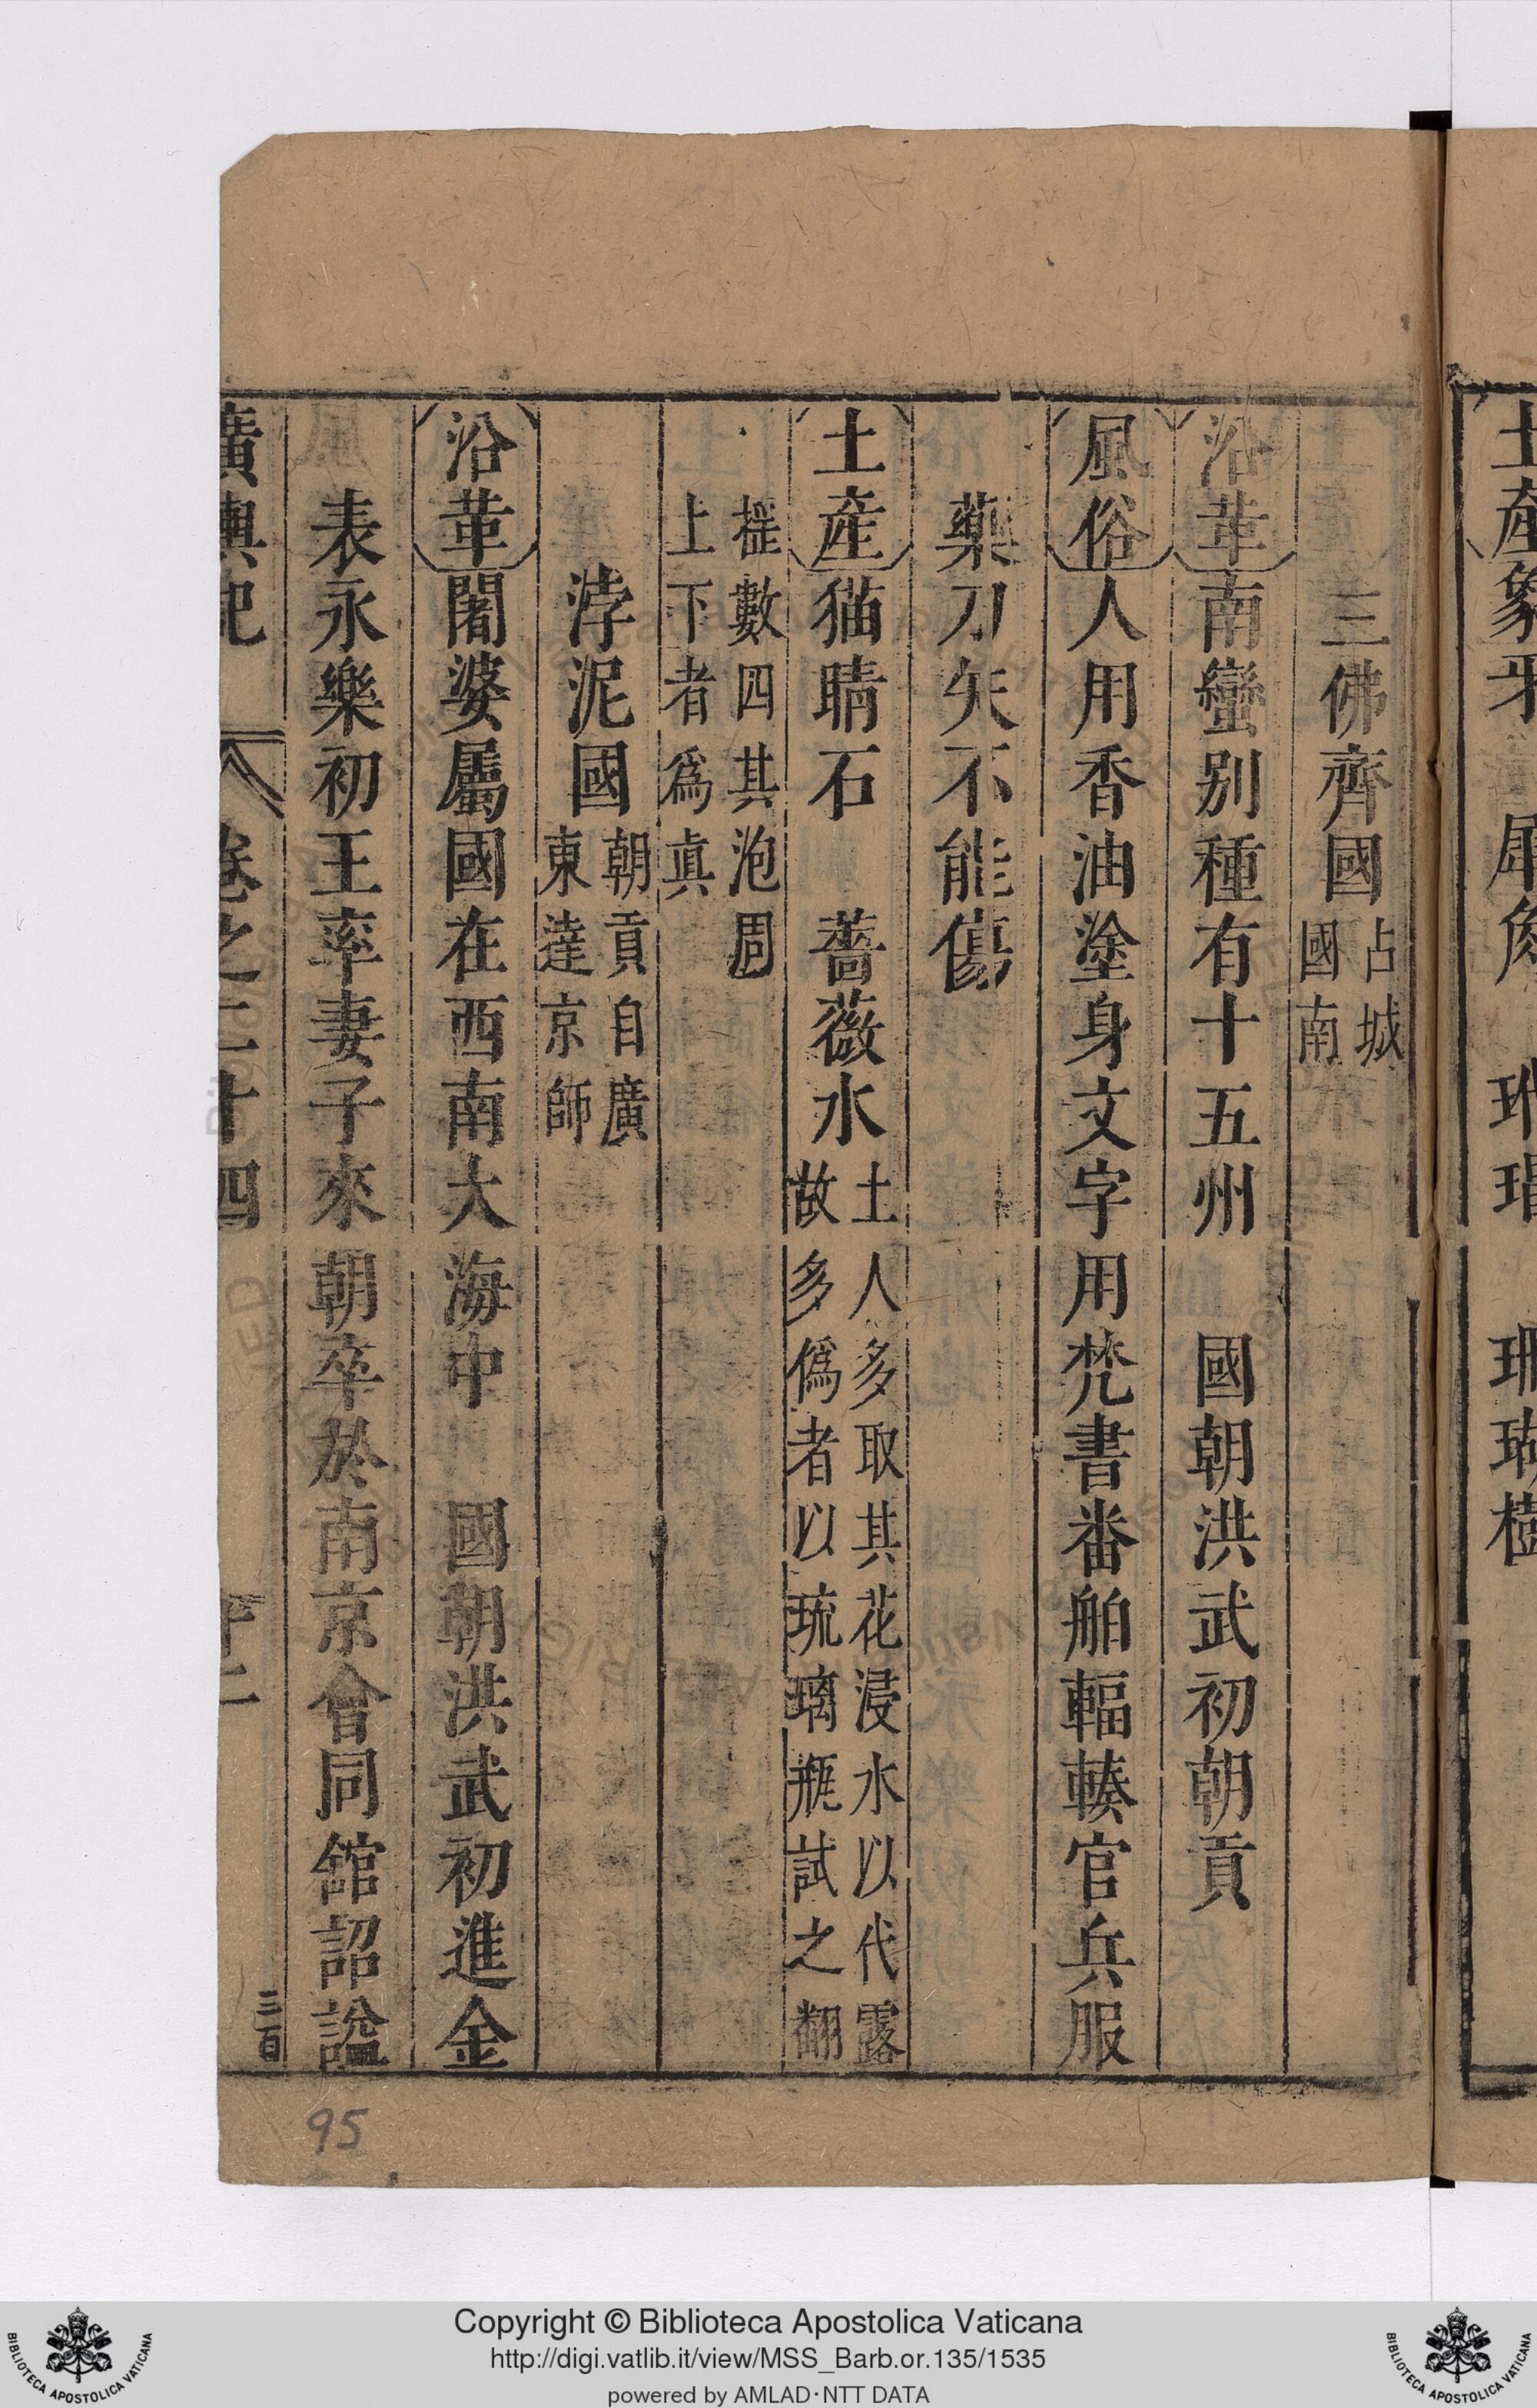 土產象牙 犀角 玳瑁 珊瑚樹
三佛齊國占城國南
沿革南蠻別種有十五州 國朝洪武初朝貢
風俗人用香油塗身文字用梵書番舶輻輳官兵服
藥刀矢不能傷
土產猫睛石 薔薇水土人多取其花浸水以代露故多偽者以琉璃瓶試之翻
搖數四其泡周上下者爲眞
浡泥國朝貢自廣東達京師
沿革闍婆屬國在西南大海中 國朝洪武初進金
表永樂初王率妻子來朝卒於南京會同舘詔謚
廣輿記 卷之二十四 十二 三百
95
Copyright © Biblioteca Apostolica Vaticana
http://digi.vatlib.it/view/MSS_Barb.or.135/1535
powered by AMLAD·NTT DATA
BIBLIOTECA APOSTOLICA VATICANA
BIBLIOTECA APOSTOLICA VATICANA